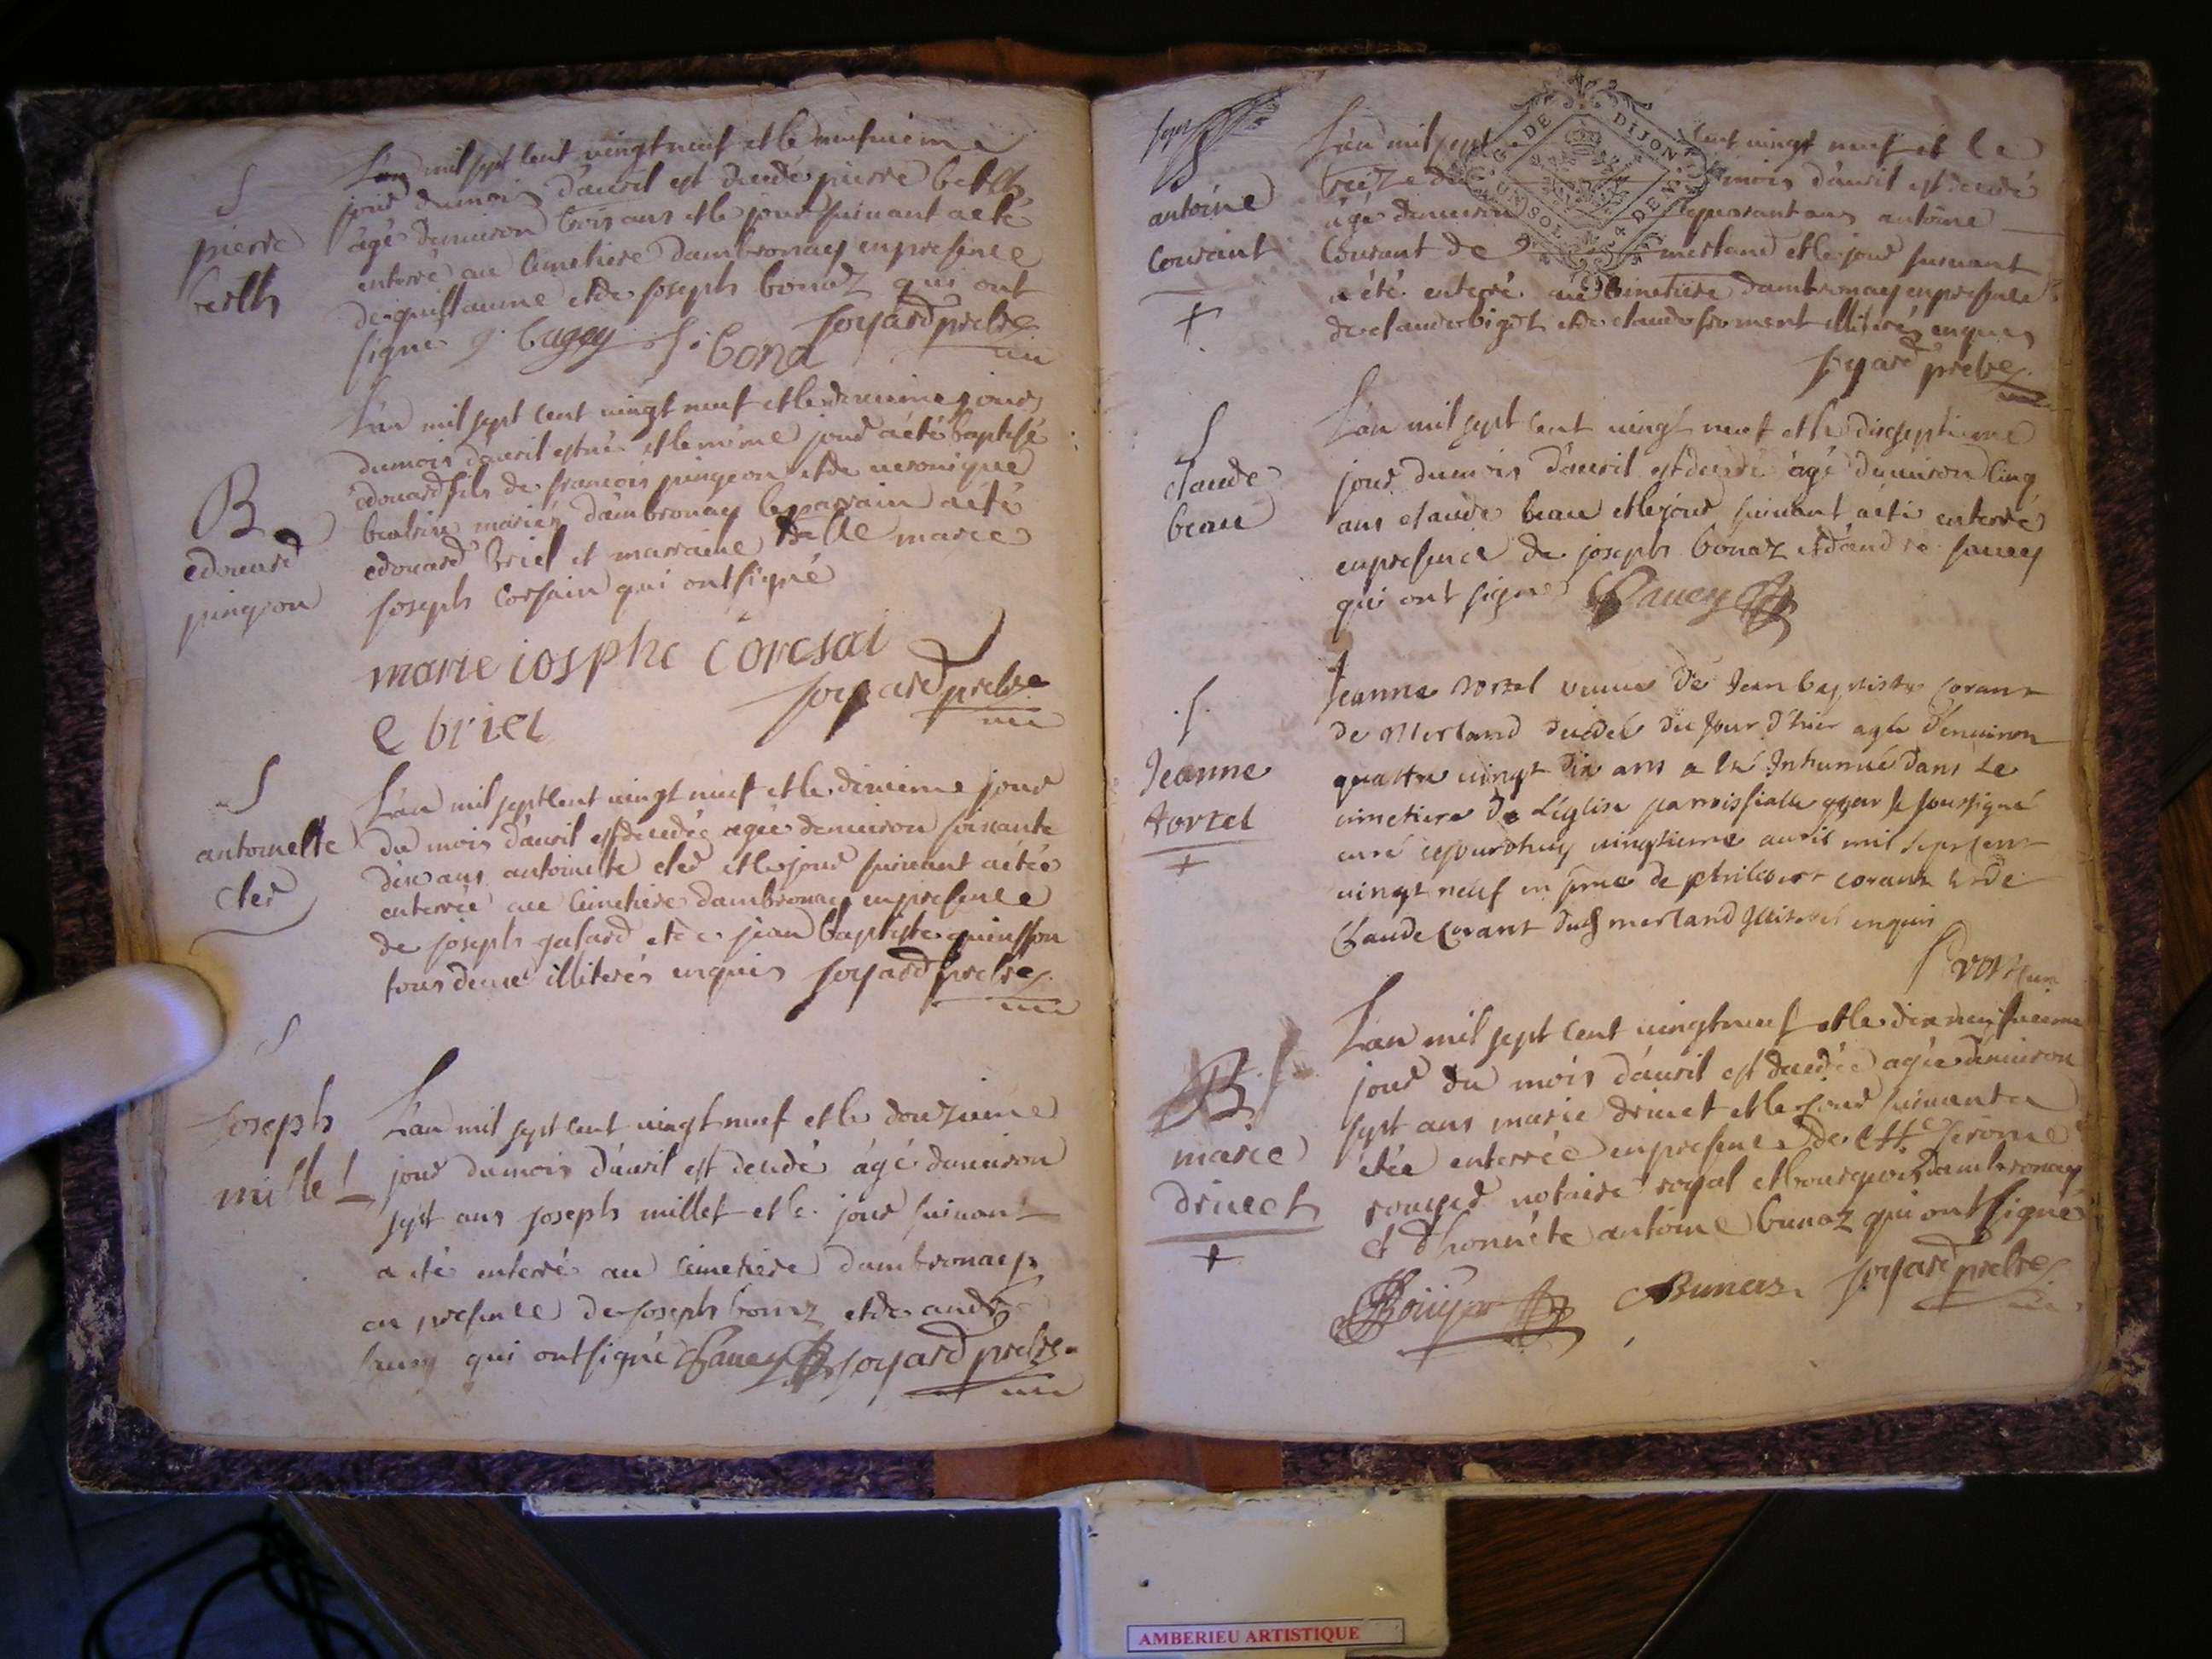 S
pierre
berth
L'an mil sept cent vingt neuf et le neufuieme
jour du mois d'auril est decedé pierre berth
âgé denuiron trois ans et le jour suiuant a eté
enterré au cimetiere dambronay en presence
de guillaume et de joseph bonaz qui ont
signé g. Cagey J. bona foyard prebre
B
edouard
pingeon
L'an mil sept cent vingt neuf et le jour
du mois d'auril est né et le même jour a été baptisé
edouard fils de francois pingeon et de ueronique
mariés dambronay le parrain a été
edouard briel et marraine delle marie
joseph corsain qui ont signé
marie iosphe corcsai
foyard prebre
e briel
S
antoinette
cler
L'an mil sept cent vingt neuf et le dixieme jour
du mois d'auril est decedée agée denuiron soixante
dix ans antoinette cler et le jour suiuant a eté
enterrée au cimetiere dambronay en presence
de joseph gasard et de jean baptiste quinsson
tous deux illiterés enquis foyard prebre
S
Joseph
millet
L'an mil sept cent vingt neuf et le douzieme
jour du mois d'auril est decedé âgé denuiron
sept ans joseph millet et le jour suiuant
a été enterré au cimetiere dambronay
en presence de joseph bonaz et de andré
sauey qui ont signé Sauey foyard prebre
S
antoine
courant
+
G. DE DIJON
L'an mil sept cent vingt neuf et le
treize du mois d'auril est decedé
âgé denuiron ans antoine
Courant de merland et le jour suiuant
a été enterré au cimetiere dambronay en presence
de claude bigot et de claude froment illiterés enquis
foyard prebre
S
claude
beau
L'an mil sept cent vingt neuf et le dixseptieme
jour du mois d'auril est decedé âgé denuiron cinq
ans claude beau et le jour suiuant a été enterré
en presence de joseph bonaz et d'andré sauey
qui ont signé Sauey
S
Jeanne
tortel
+
Jeanne tortel veuue de Jean baptiste corant
de Merland decedée du jour d'hier agée d'enuiron
quattre vingt dix ans a été Inhumée dans Le
cimetiere de L'église parroissialle par je soussigné
curé cejourdhuy vingtieme auril mil sept cent
vingt neuf en pnce de philibert corant et de
Claude Corant dud merland Illiterés enquis
B S
marie
driuet
+
L'an mil sept cent vingt neuf et le dix neufuieme
jour du mois d'auril est decedée agée denuiron
sept ans marie driuet et le jour suiuant a
étée enterrée en presence de Me Jerome
rouyer notaire royal et bourgeois dambronay
et d'honnête antoine bunaz qui ont signé
Rouyer Bunas foyard prebre
AMBERIEU ARTISTIQUE